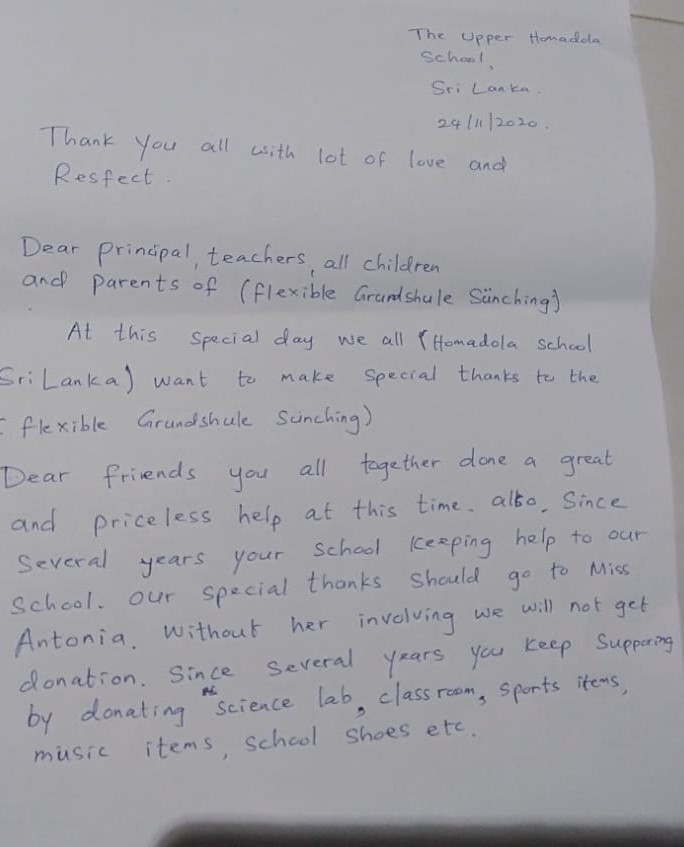 The Upper Homadola
School,
Sri Lanka.
24/11/2020.
Thank you all with lot of love and
Respect.
Dear principal, teachers, all children
and parents of (flexible Grundshule Sünching)
At this special day we all (Homadola school
Sri Lanka) want to make special thanks to the
flexible Grundshule Sünching)
Dear friends you all together done a great
and priceless help at this time. also, Since
Several years your school keeping help to our
School. our special thanks should go to Miss
Antonia. without her involving we will not get
donation. Since several years you keep Supporing
by donating science lab, class room, sports items,
music items, school shoes etc.